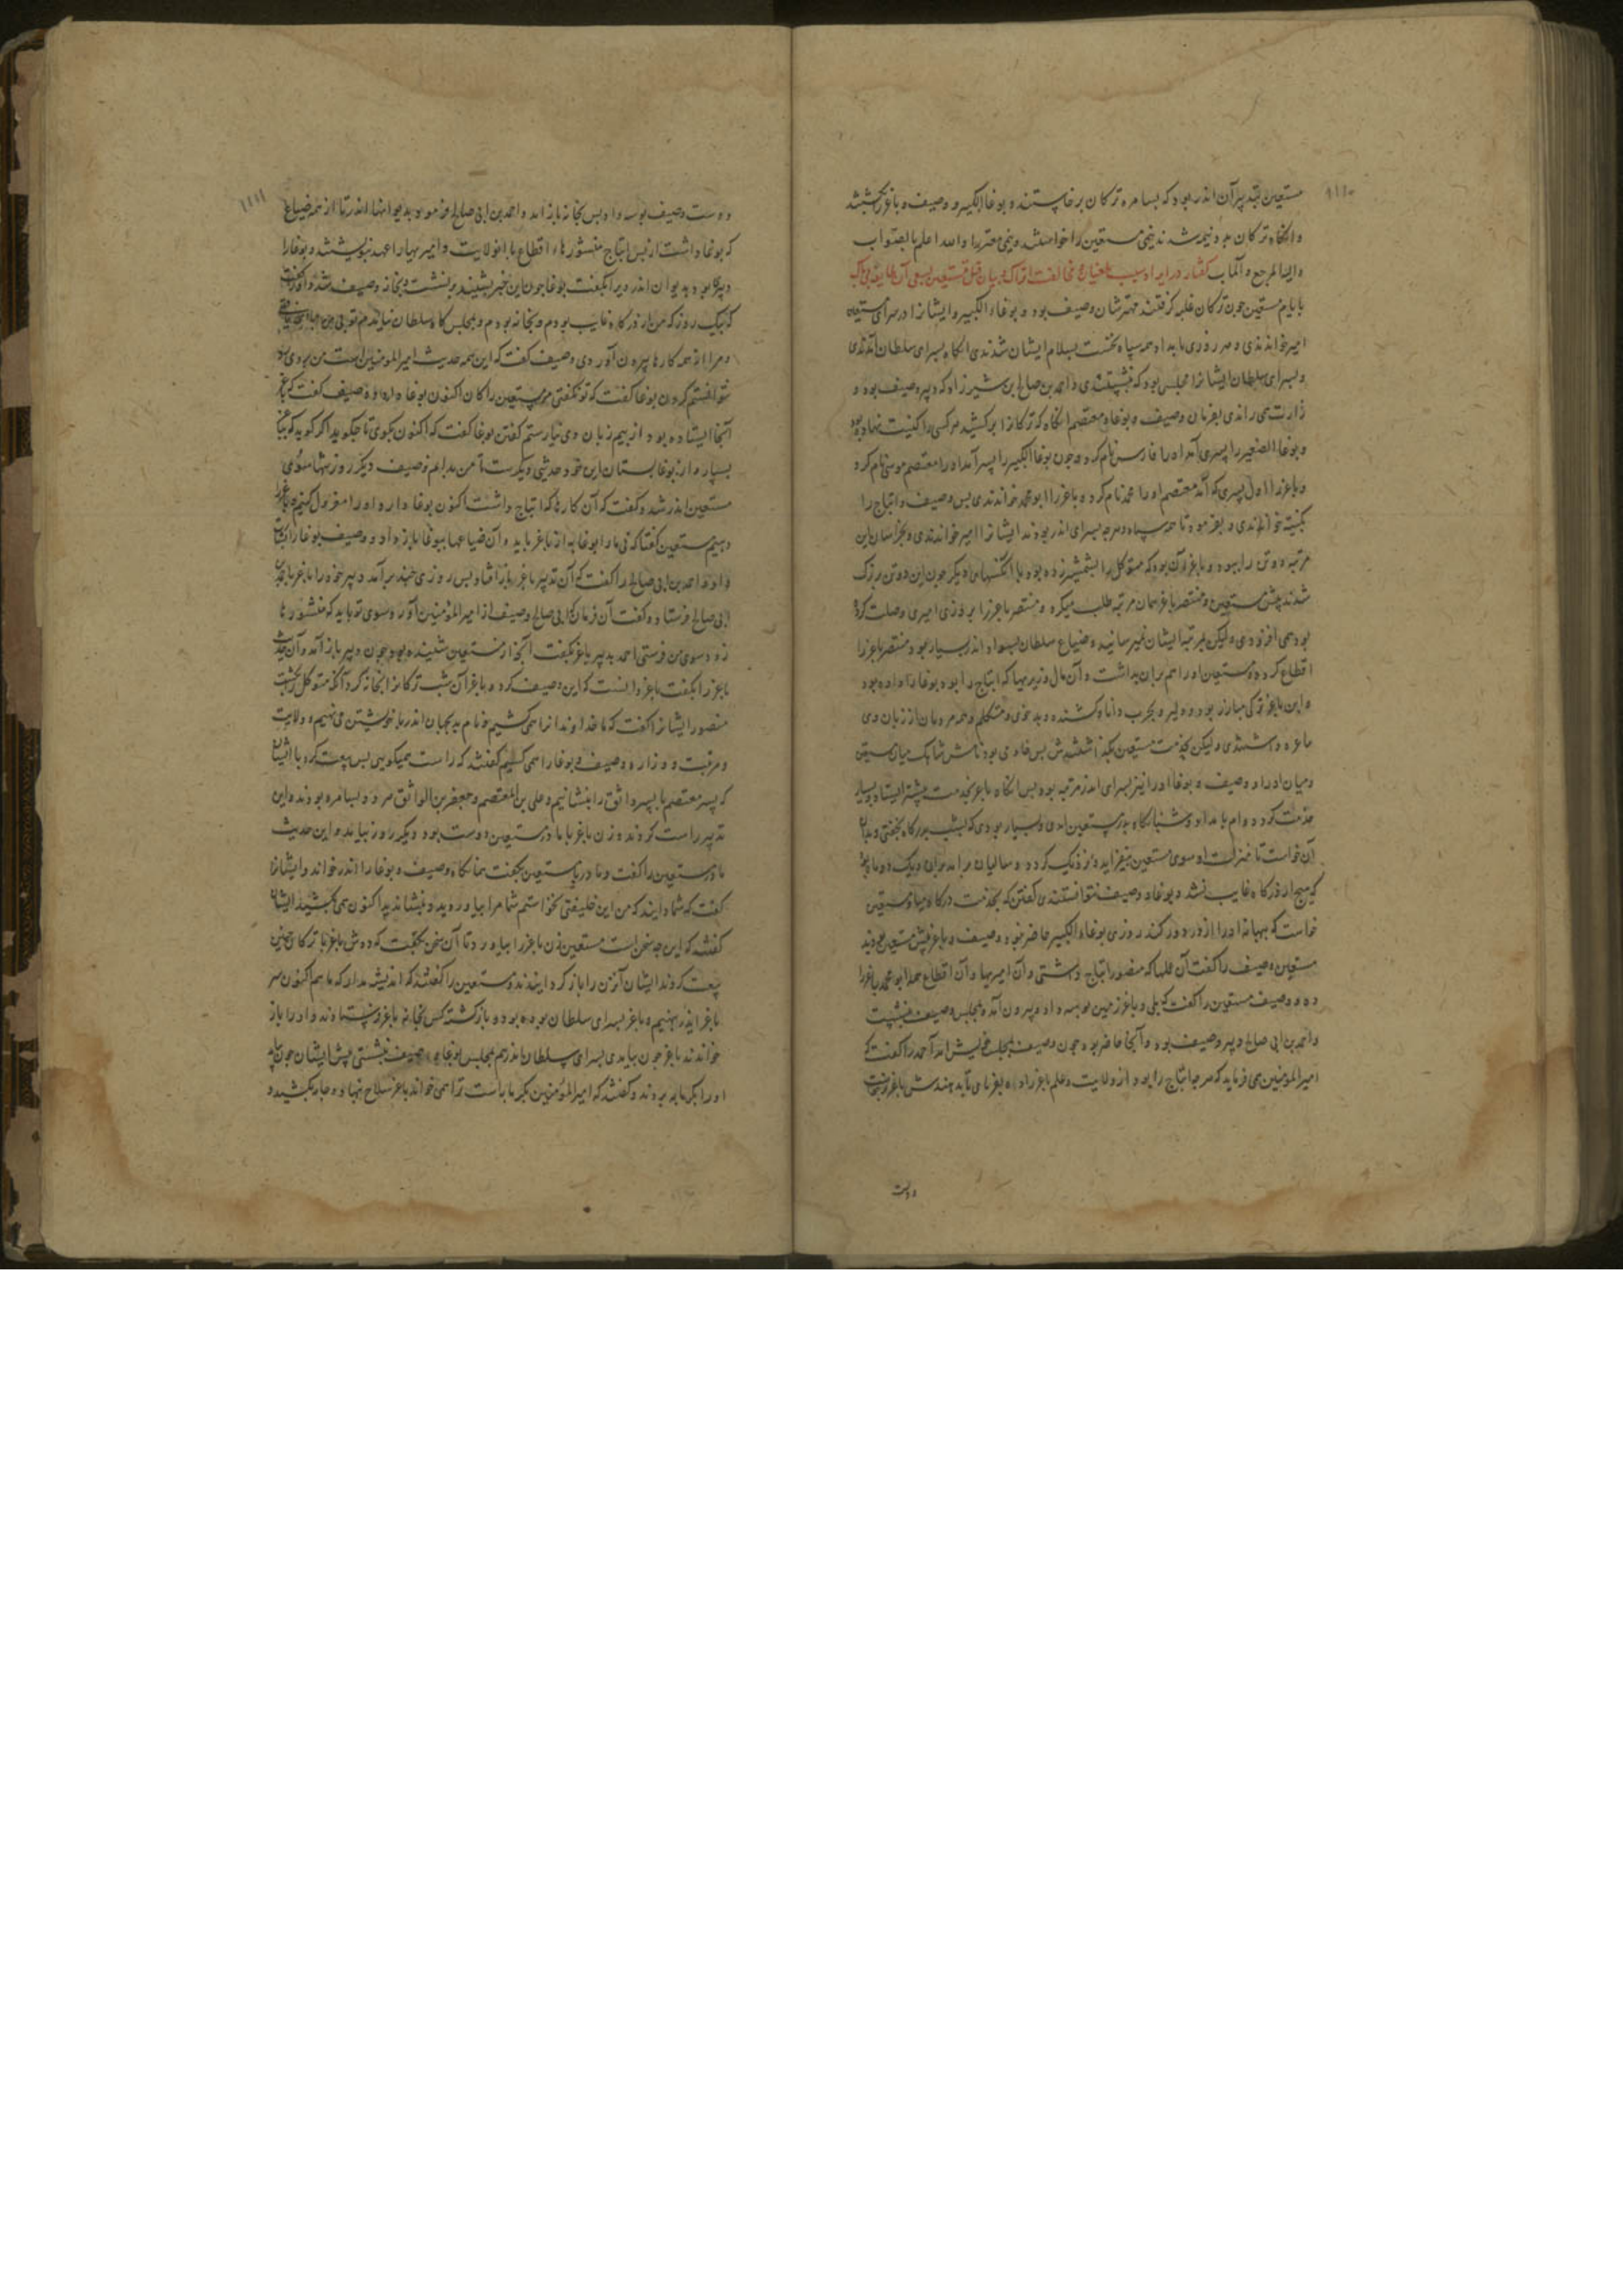 ۱۱۱۰
مستعین بتدبیر آن اندر بود که بسامره ترکان برخاستند و بوغا الکبیر و وصیف و باغر را بکشتند
وانکاه ترکان بدو نیمه شدند نیمی مستعین را خواستند و نیمی معتز را والله اعلم بالصواب
والیه المرجع والمآب کفتار در ایراد سبب طغیان و مخالفت اتراک و بیان قتل مستعین بسعی آن طایفه بی باک
بایام مستعین چون ترکان غلبه کرفتند مهترشان وصیف بود و بوغاء الکبیر و ایشانرا در سرای مستعین
امیر خواندندی و هر روزی بامداد همه سپاه نخست بسلام ایشان شدندی انکاه بسرای سلطان آمدندی
و بسرای سلطان ایشانرا مجلس بود که بنشستندی و احمد بن صالح بن شیرزاد که دبیر وصیف بود و
زارت همی راندی بفرمان وصیف و بوغا و معتصم انکاه که ترکانرا برکشید هر کسی را کنیت نهاده بود
و بوغا الصغیر را پسری آمد او را فارس نام کرد و چون بوغا الکبیر را پسر آمد او را معتصم موسی نام کرد
و باغر را اول پسری که آمد معتصم او را محمد نام کرد و باغر را ابو محمد خواندندی پس وصیف و ایتاخ را
بکنیت خواندی و بفرموده تا همه سپاه و هر چه بسرای اندر بودند ایشانرا امیر خواندندی و بخراسان این
مرتبه دو تن را بوده و باغر آن بود که متوکل را بشمشیر زده بود با انکسهای دیکر چون این دو تن بزرک
شدند پیش مستعین و منتصر باغر همان مرتبه طلب میکرد و منتصر باغر را بروزی امیری وصلت کرده
بود همی افزودی ولیکن بمرتبه ایشان نمیرسانید و ضیاع سلطان بسواد اندر بسیار بود منتصر باغر را
اقطاع کرده و مستعین او را هم بران بداشت و آن مال و زمینها که ایتاخ را بود بوغا را داده بود
و این باغر ترکی مبارز بود و دلیر و بحرب دانا و کشنده و بد خوی و متکلم و همه مردمان از زبان وی
عاجز و داشتندی ولیکن بخدمت مستعین بکذاشتندش پس خادمی بود نامش شاهک میان مستعین
و میان او داد و وصیف و بوغا او را نیز بسرای اندر مرتبه بود پس انکاه باغر بخدمت پیشتر ایستاد و بسیار
خدمت کرد و دوام بامداد و شبانکاه بدر مستعین امدی و بسیار بودی که بشب بدرکاه بخفتی و بدان
آن خواست تا منزلت او سوی مستعین بیفزاید و نزدیک کردد و سالیان برامد
که هیچ از درکاه غایب نشد و بوغا و وصیف نتوانستندی کفتن که بخدمت درکاه میا و مستعین
خواست که بهانه او را از در دور کند روزی بوغاء الکبیر حاضر نبود و وصیف و باغر پیش مستعین بودند
مستعین وصیف را کفت آن عملها که منصور ایتاخ داشتی و ان امیریها و آن اقطاع همه ابو محمد باغر را
ده و وصیف مستعین را کفت که بلی و باغر زمین بوسه داد و بیرون آمد و بمجلس وصیف بنشست
و احمد بن ابی صالح دبیر وصیف بود و آنجا حاضر بود چون وصیف بمجلس خویش امد احمد را کفت که
امیر المومنین همی فرماید که هر چه ایتاخ را بود از ولایت و علم باغر را ده بفرمای تا بدهندش باغر برخاست
دوست
۱۱۱۱
دوست وصیف بوسه داد پس بخانه باز امد و احمد بن ابی صالح فرمود بدیوانها اندر تا از همه ضیاع
که بوغا داشت از پس ایتاخ منشورهاء اقطاع با ولایت و امیریها را عهد بنویشتند و بوغا را
دبیرکی بود بدیوان اندر ویرا بکفت بوغا چون این خبر بشنید برنشست و بخانه وصیف شد و او را کفت
که بیک روز که من از درکاه غایب بودم و بخانه بودم و بمجلس کاه سلطان نیامدم تو بی من
و مرا از همه کارها بیرون آوردی وصیف کفت که این همه حدیث امیر المومنین است من بر وی رد
نتوانستم کردن بوغا کفت که تو نکفتی مر مستعین را کان اکنون بوغا دارد وصیف کفت که باغر
آنجا ایستاده بود از بیم زبان وی نیارستم کفتن بوغا کفت که اکنون بکوی تا چکوید اکر کوید که باغر
بسپار و از بوغا بستان این خود حدیثی دیکر ست تا من بدانم وصیف دیکر روز تنها سوی
مستعین اندر شد و کفت که آن کارها که ایتاخ داشت اکنون بوغا دارد او را معزول کنیم و باغر را
دهیم مستعین کفتا که نی ما را بوغا به از باغر باید و آن ضیاعها ببوغا باز داد و وصیف بوغا را بخواند
و او و احمد بن ابی صالح را کفت که آن تدبیر باغر باز افتاد پس روزی چند برآمد دبیر خود را باغر باحمد بن
ابی صالح فرستاد و کفت آن فرمان که ابی صالح وصیف از امیر المؤمنین آورد سوی تو باید که منشورها
زود سوی من فرستی احمد بدبیر باغر بکفت آنچه از مستعین شنیده بود چون دبیر باز آمد و آن حدیث
باغر را بکفت باغر دانست که این وصیف کرد و باغر آن شب ترکانرا بخانه کرد آنکه متوکل را بکشت
منصور ایشانرا کفت که ما خداوندانرا همی کشیم و نام بد بجهان اندر بر خویشتن می نهیم و ولایت
و مرتبت و وزاره وصیف و بوغا را همی کنیم کفتند که راست همیکویی پس بیعت کرد با ایشان
که پسر معتصم یا پسر واثق را بنشانیم و علی بن المعتصم و جعفر بن الواثق هر دو بسامره بودند و این
تدبیر راست کردند و زن باغر با مادر مستعین دوست بود دیکر روز بیامد و این حدیث
مادر مستعین را کفت و مادر با مستعین بکفت همانکاه وصیف و بوغا را اندر خواند و ایشانرا
کفت که شما دانید که من این خلیفتی نخواستم شما مرا بیاوردید و بنشاندید اکنون همی بکشید ایشان
کفتند که این چه سخن است مستعین زن باغر را بیاورد تا آن سخن بکفت که دوش باغر با ترکان چنین
بیعت کردند ایشان آنزن را باز کردانیدند و مستعین را کفتند که اندیشه مدار که ما هم اکنون سر
باغر اندر نهیم و باغر بسرای سلطان بوده بود و باز کشته کس بخانه باغر فرستادند و او را باز
خواندند باغر چون بیامدی بسرای سلطان اندر هم بمجلس بوغا و وصیف بنشستی پیش ایشان چون بیامد
او را بکرمابه بردند و کفتند که امیر المؤمنین بکرمابه است ترا همی خواند باغر سلاح بنهاد و جامه بکشید و